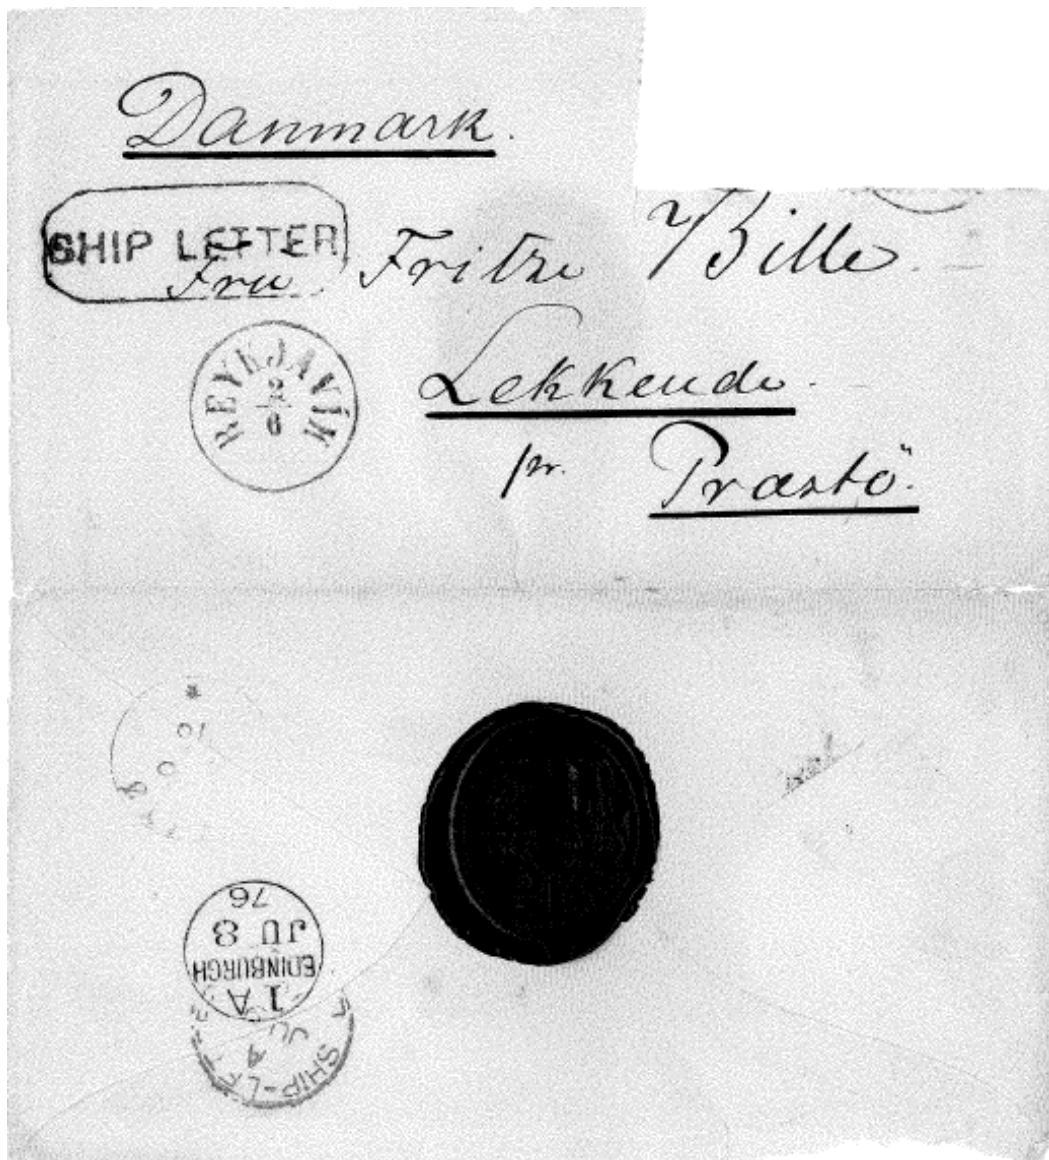 Danmark.
SHIP LETTER
Fru Fritze Bille
REYKJAVÍK
2
6
Lekkende
pr. Præstö.
1 A
EDINBURGH
JU 8
76
SHIP-LE